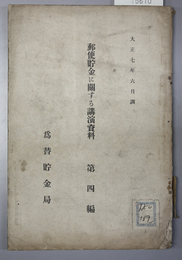 大正七年六月調
郵便貯金に關する講演資料 第四編
爲替貯金局